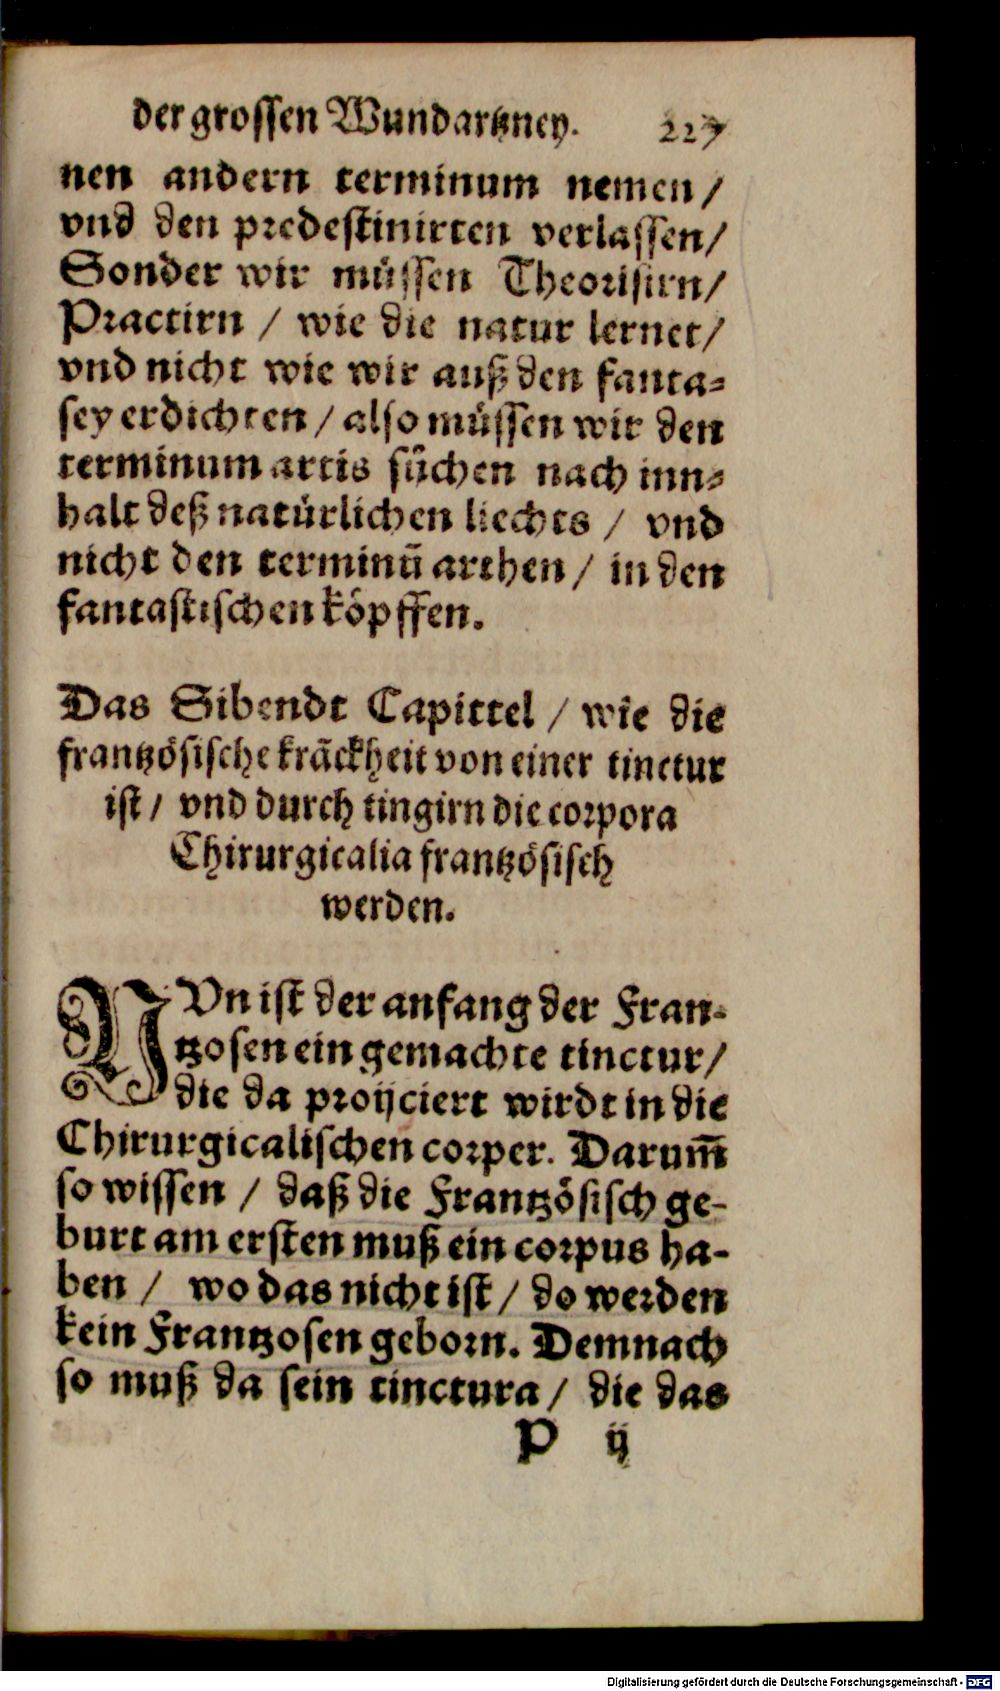 der grossen Wundartzney. 227
nen andern terminum nemen /
vnd den predestinirten verlassen /
Sonder wir müssen Theorisirn /
Practirn / wie die natur lernet /
vnd nicht wie wir auß den fanta-
sey erdichten / also müssen wir den
terminum artis sůchen nach inn-
halt deß natürlichen liechts / vnd
nicht den terminũ arthen / in den
fantastischen köpffen.
Das Sibendt Capittel / wie die
frantzösische krãckheit von einer tinctur
ist / vnd durch tingirn die corpora
Chirurgicalia frantzösisch
werden.
NVn ist der anfang der Fran-
tzosen ein gemachte tinctur /
die da proijciert wirdt in die
Chirurgicalischen corper. Darum̃
so wissen / daß die Frantzösisch ge-
burt am ersten muß ein corpus ha-
ben / wo das nicht ist / do werden
kein Frantzosen geborn. Demnach
so muß da sein tinctura / die das
P ij
Digitalisierung gefördert durch die Deutsche Forschungsgemeinschaft - DFG